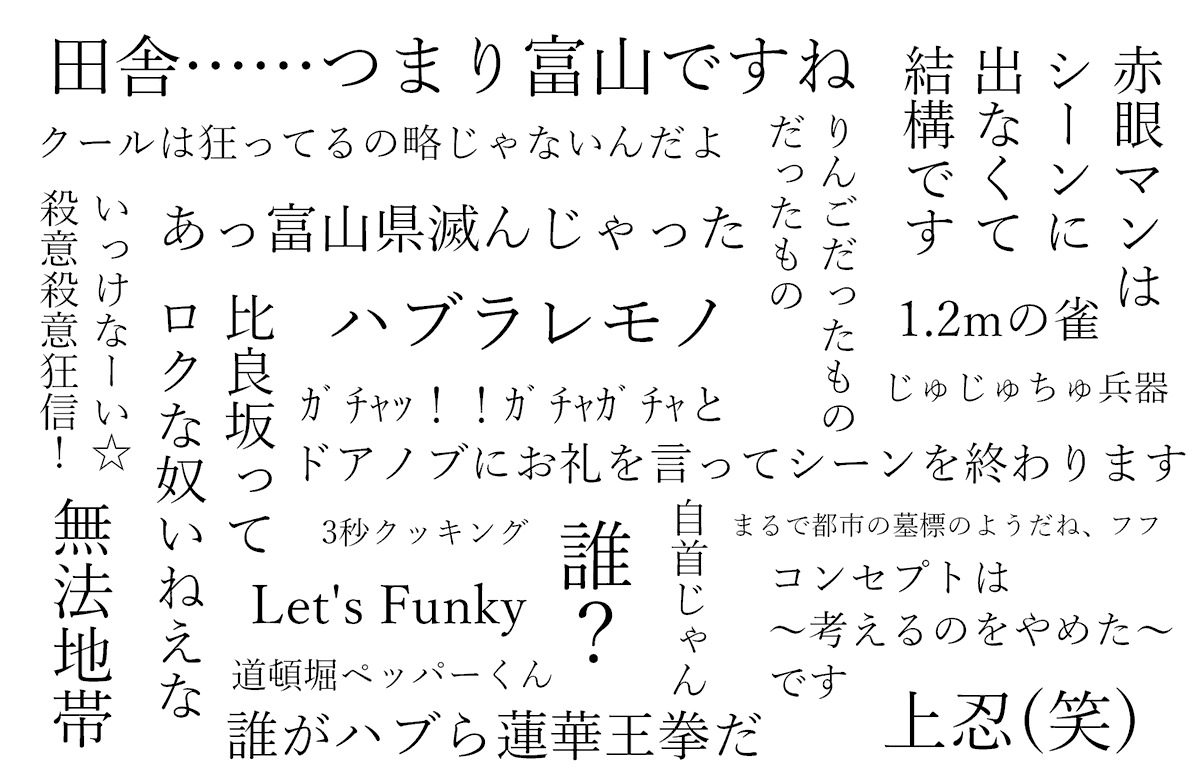 田舎……つまり富山ですね
クールは狂ってるの略じゃないんだよ
赤眼マンは
シーンに
出なくて
結構です
りんごだったもの
だったもの
いっけなーい☆
殺意殺意狂信！
あっ富山県滅んじゃった
比良坂って
ロクな奴いねえな
ハブラレモノ
1.2mの雀
じゅじゅちゅ兵器
ｶﾞﾁｬｯ！！ｶﾞﾁｬｶﾞﾁｬと
ドアノブにお礼を言ってシーンを終わります
無法地帯
3秒クッキング
誰？
自首じゃん
まるで都市の墓標のようだね、フフ
Let's Funky
コンセプトは
～考えるのをやめた～
です
道頓堀ペッパーくん
誰がハブら蓮華王拳だ
上忍(笑)